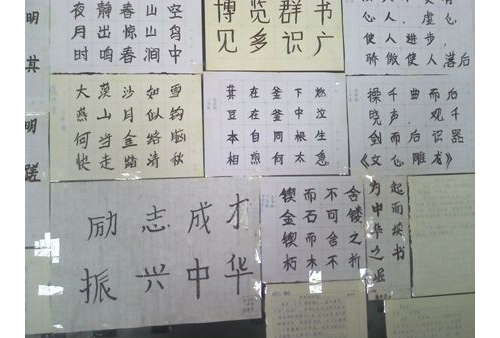 明
其
明
蹉
夜静春山空
月出惊山鸟
时鸣春涧中
博览群书
见多识广
心人，虚心
使人进步，
骄傲使人落后
大漠沙如雪
燕山月似钩
何当金络脑
快走踏清秋
萁在釜下燃
豆在釜中泣
本自同根生
相煎何太急
操千曲而后
晓声，观千
剑而后识器
《文心雕龙》
励志成才
振兴中华
锲而不舍
金石可镂
锲而舍之
朽木不折
为中华之崛
起而读书